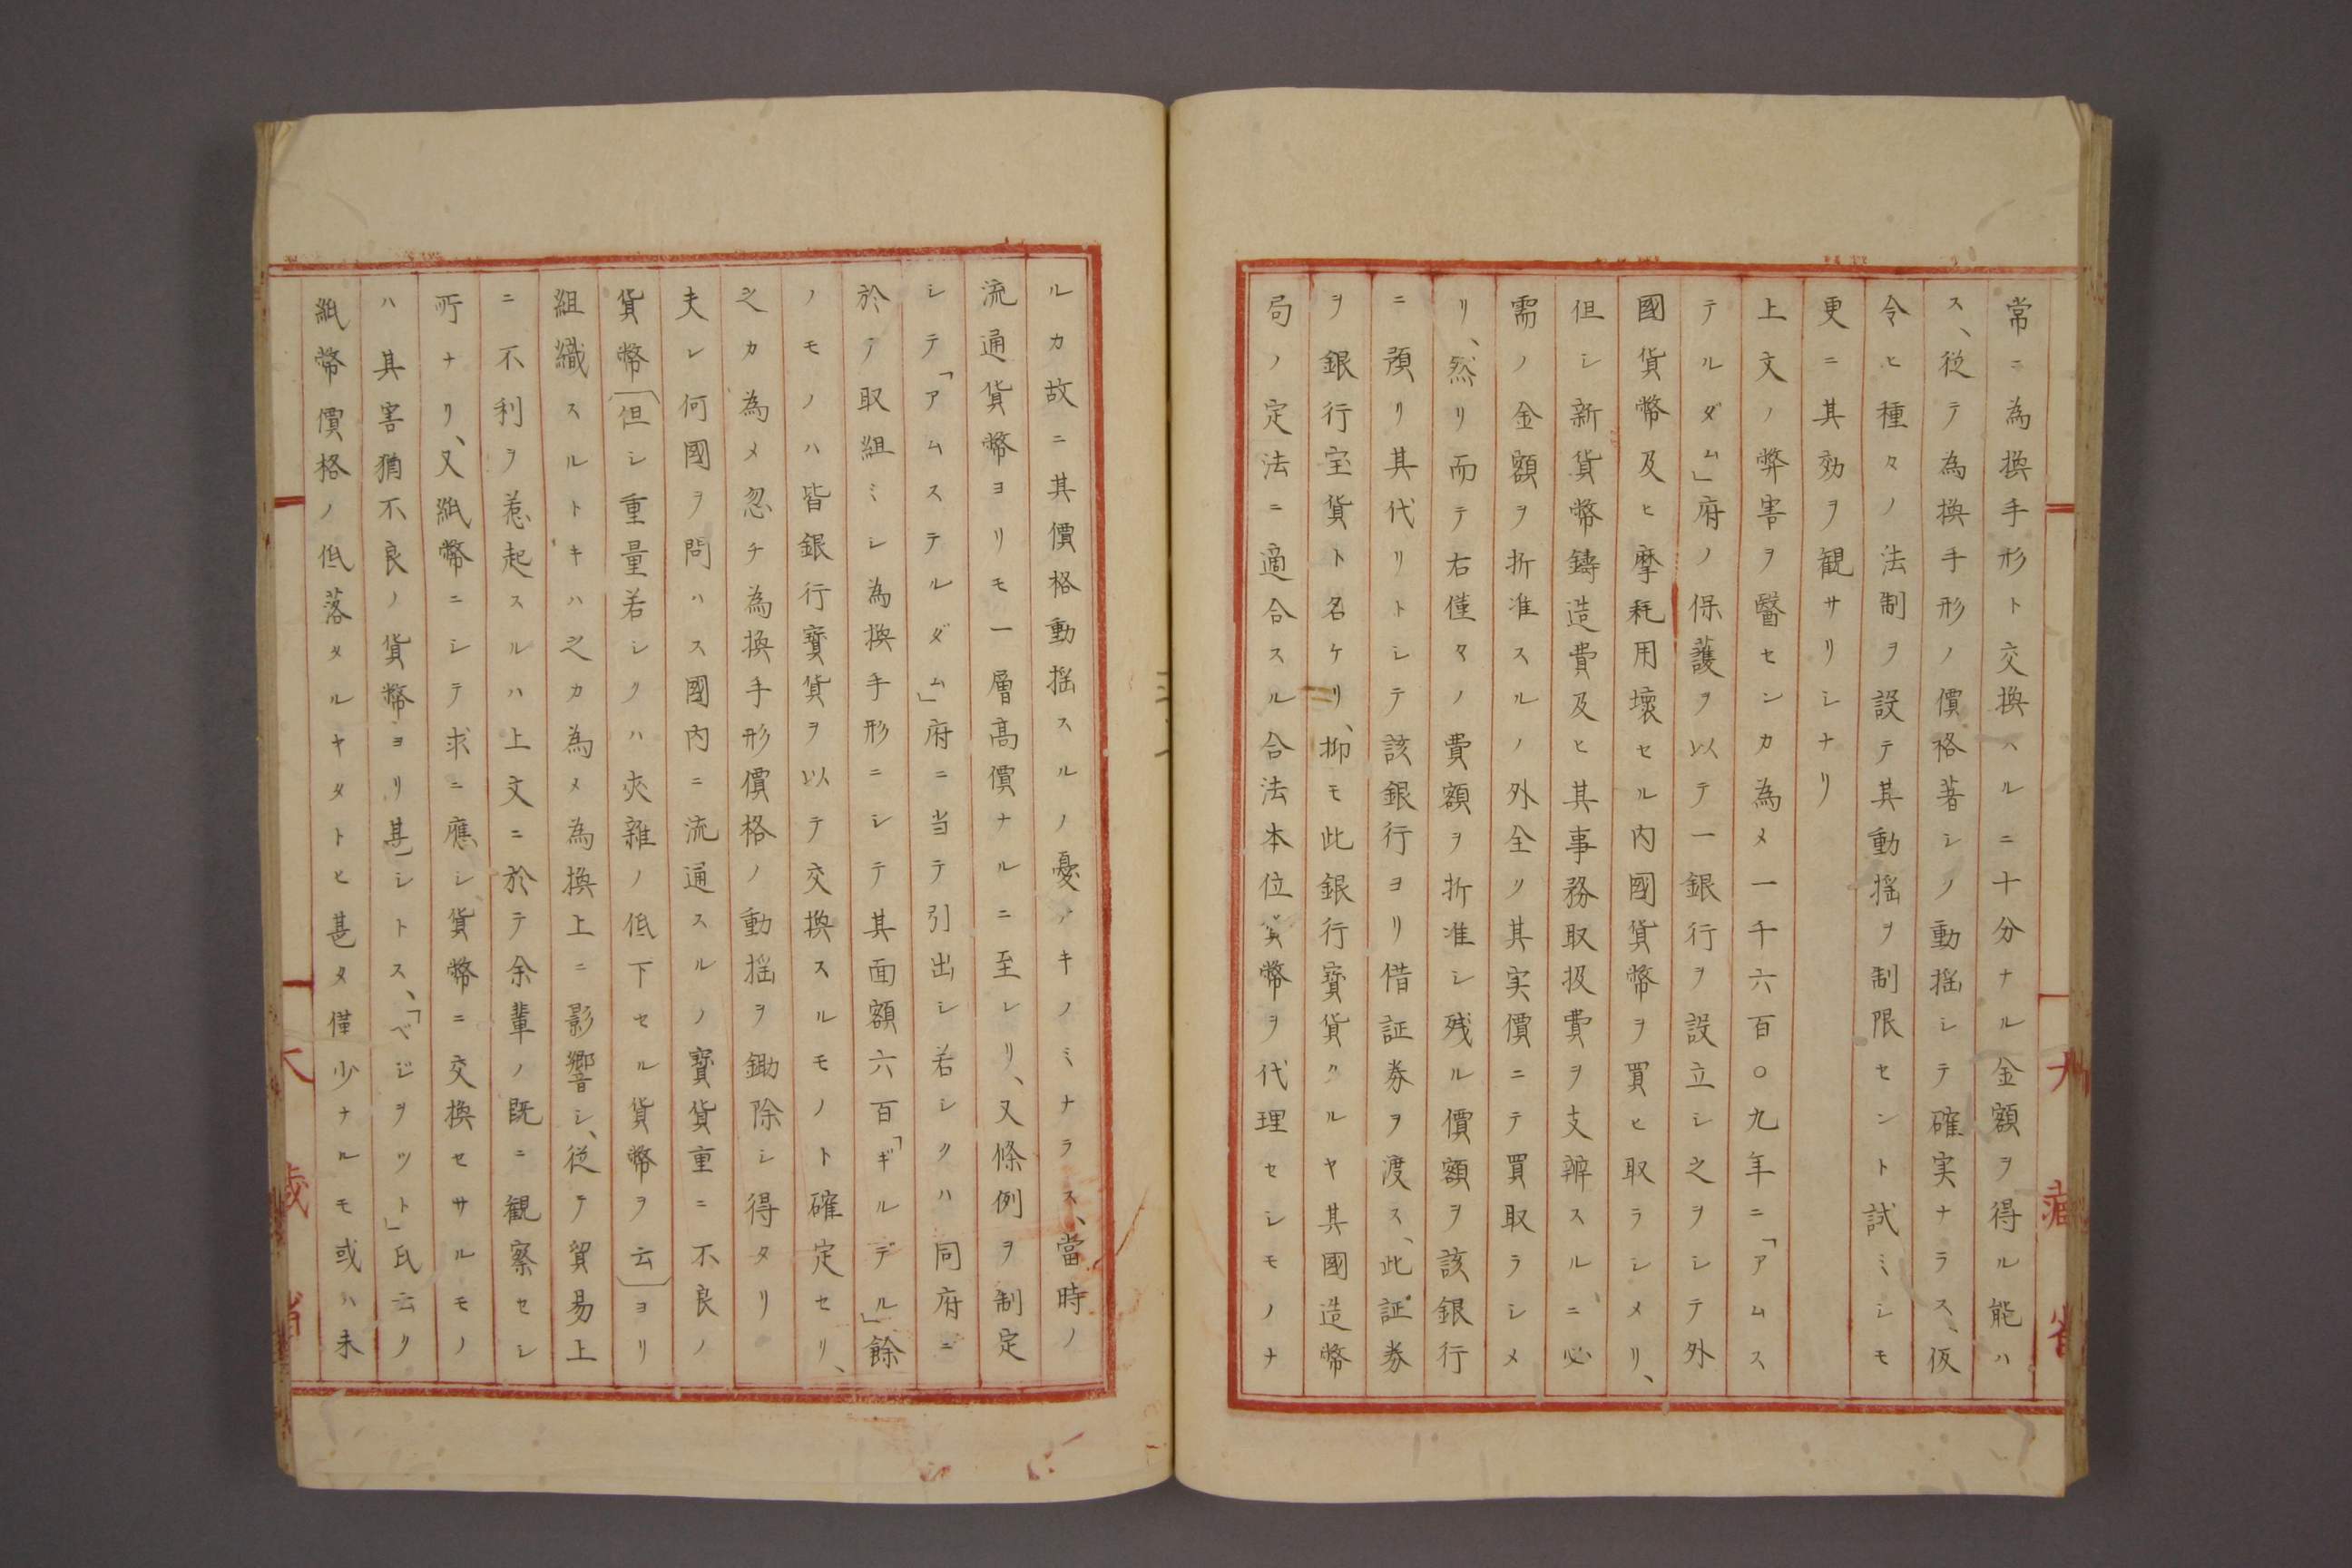 常ニ為換手形ト交換ハルニ十分ナル金額ヲ得ル能ハ
ス、従テ為換手形ノ價格著シク動揺シテ確実ナラス、仮
令ヒ種々ノ法制ヲ設テ其動揺ヲ制限セント試ミシモ
更ニ其効ヲ観サリシナリ
上文ノ弊害ヲ醫センカ為メ一千六百〇九年ニ「アムス
テルダム」府ノ保護ヲ以テ一銀行ヲ設立シ之ヲシテ外
國貨幣及ヒ摩耗用壊セル内國貨幣ヲ買ヒ取ラシメリ、
但シ新貨幣鑄造費及ヒ其事務取扱費ヲ支辨スルニ必
需ノ金額ヲ折准スルノ外全ク其実價ニテ買取ラシメ
リ、然リ而テ右僅々ノ費額ヲ折准シ残ル價額ヲ該銀行
ニ預リ其代リトシテ該銀行ヨリ借証券ヲ渡ス、此証券
ヲ銀行宝貨ト名ケリ、抑モ此銀行寳貨タルヤ其國造幣
局ノ定法ニ適合スル合法本位貨幣ヲ代理セシモノナ
ルカ故ニ其價格動揺スルノ憂アキノミナラス、當時ノ
流通貨幣ヨリモ一層高價ナルニ至レリ、又條例ヲ制定
シテ「アムステルダム」府ニ当テ引出シ若シクハ同府ニ
於テ取組ミシ為換手形ニシテ其面額六百「ギルデル」餘
ノモノハ皆銀行寳貨ヲ以テ交換スルモノト確定セリ、
之カ為メ忽チ為換手形價格ノ動揺ヲ鋤除シ得タリ
夫レ何國ヲ問ハス國内ニ流通スルノ寳貨貨重ニ不良ノ
貨幣〔但シ重量若シクハ夾雑ノ低下セル貨幣ヲ云〕ヨリ
組織スルトキハ之カ為メ為換上ニ影響シ、従テ貿易上
ニ不利ヲ惹起スルハ上文ニ於テ余輩ノ既ニ観察セシ
所ナリ、又紙幣ニシテ求ニ應シ貨幣ニ交換セサルモノ
ハ其害猶不良ノ貨幣ヨリ甚シトス、「ベジヲツト」氏云ク
紙幣價格ノ低落タルヤタトヒ甚タ僅少ナルモ或ハ未
大藏省